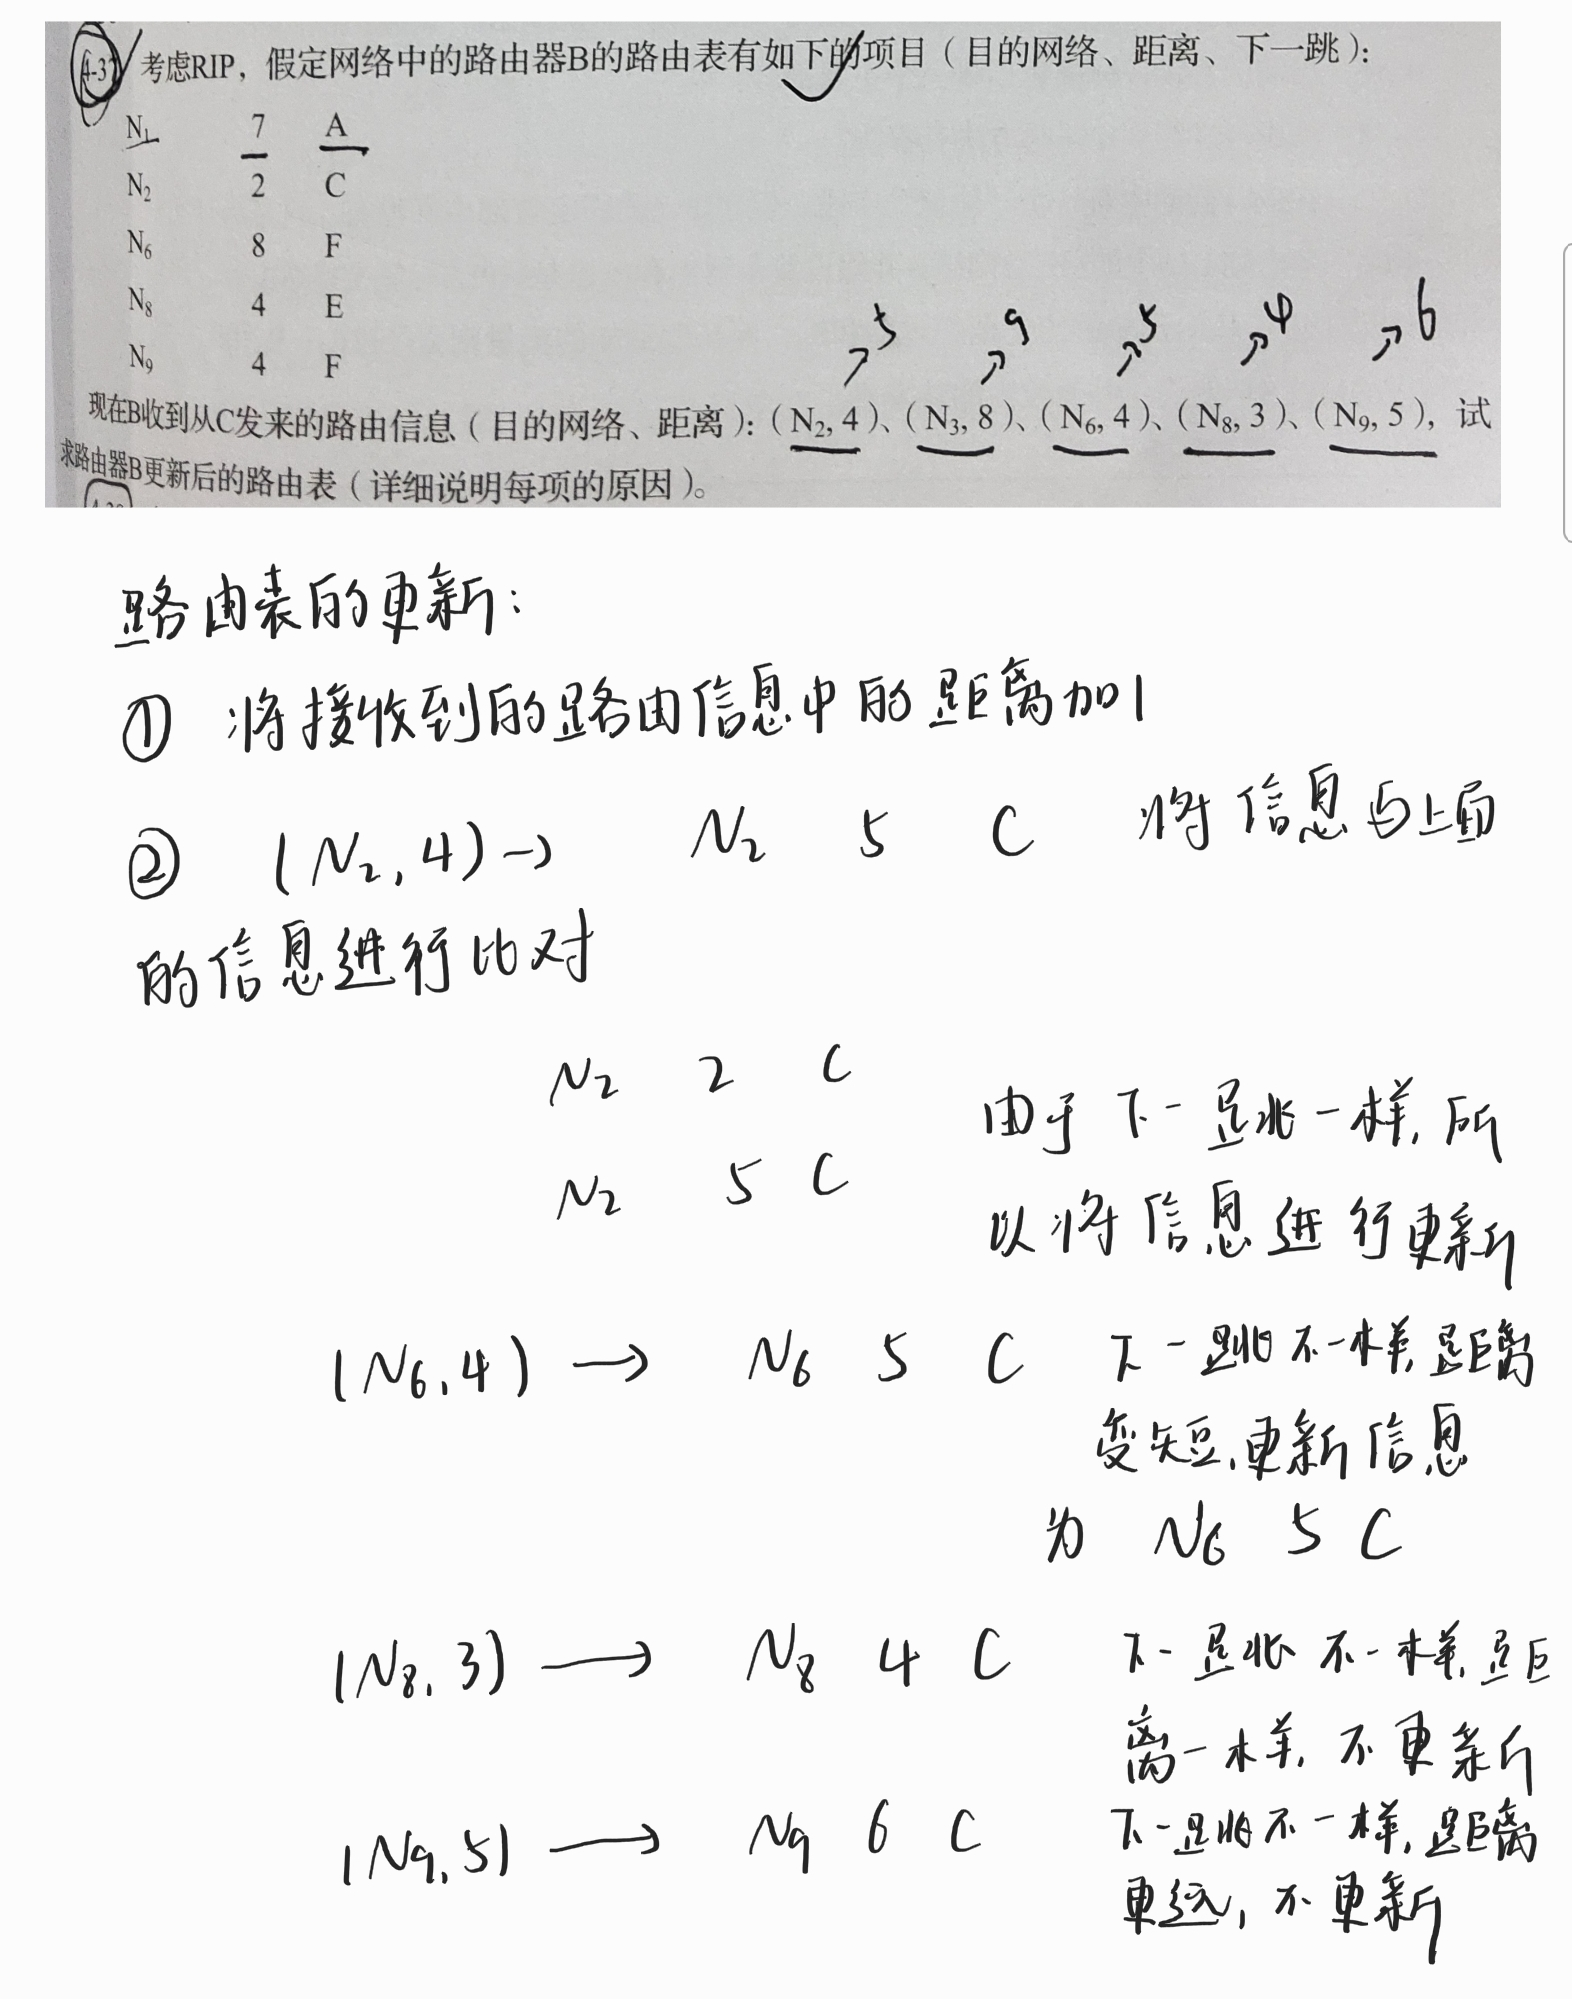 4-37 考虑RIP，假定网络中的路由器B的路由表有如下的项目（目的网络、距离、下一跳）：
N₁ 7 A
N₂ 2 C
N₆ 8 F
N₈ 4 E
N₉ 4 F
5 9 5 4 6
现在B收到从C发来的路由信息（目的网络、距离）：（N₂, 4）、（N₃, 8）、（N₆, 4）、（N₈, 3）、（N₉, 5），试
求路由器B更新后的路由表（详细说明每项的原因）。
路由表的更新：
① 将接收到的路由信息中的距离加1
② (N₂, 4) → N₂ 5 C 将信息与上面
的信息进行比对
N₂ 2 C
N₂ 5 C
由于下一跳一样, 所
以将信息进行更新
(N₆, 4) → N₆ 5 C 下一跳不一样, 距离
变短, 更新信息
为 N₆ 5 C
(N₈, 3) → N₈ 4 C 下一跳不一样, 距
离一样, 不更新
(N₉, 5) → N₉ 6 C 下一跳不一样, 距离
更远, 不更新